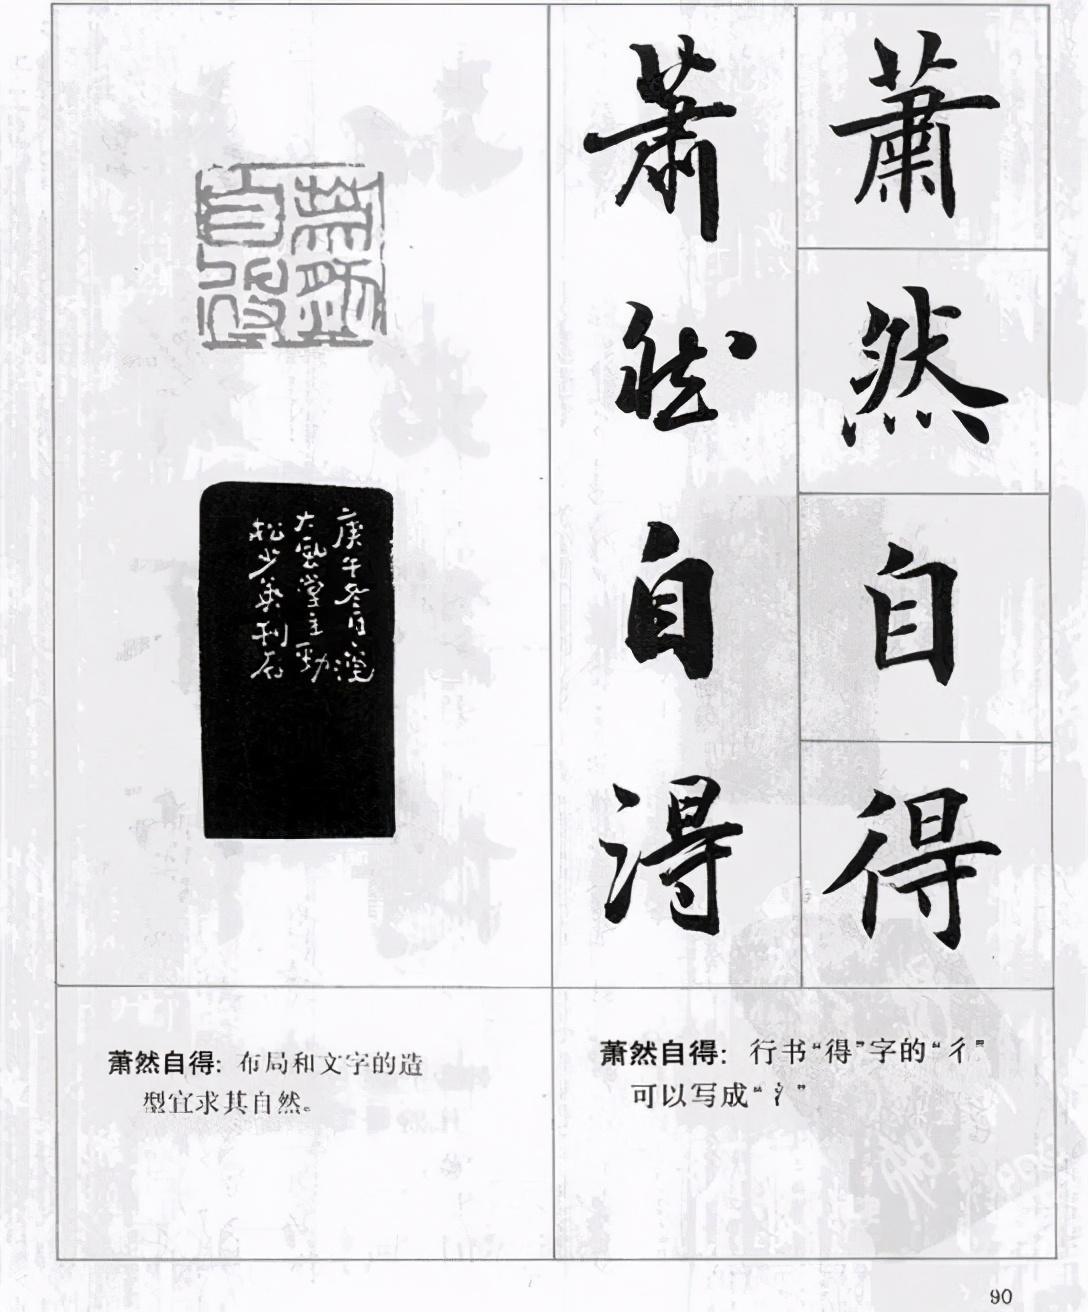 蕭
然
自
得
蕭
然
自
得
蕭然
自得
庚午冬月
大風堂主
松少英刊石
萧然自得：行书“得”字的“彳”
可以写成“氵”
萧然自得：布局和文字的造
型宜求其自然。
90